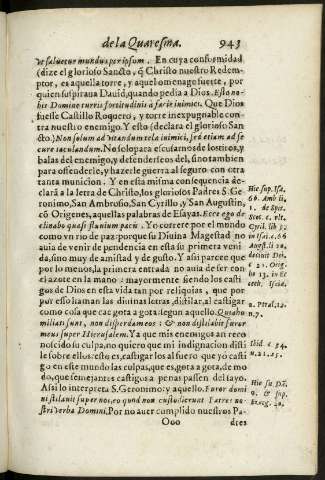 de la Quaresma. 943
vt saluetur mundus per ipsum. En cuya conformidad
(dize el glorioso Sancto, q̃ Christo nuestro Redemp-
tor, es aquella torre, y aquel omenage fuerte, por
quien suspiraua Dauid, quando pedia a Dios. Esto no-
bis Domine turris fortitudinis à facie inimici. Que Dios
fuesse Castillo Roquero, y torre inexpugnable con-
tra nuestro enemigo. Y esto (declara el glorioso San-
cto.) Non solum ad vitandum tela inimici, sed etiam ad se
cure iaculandum. No solo para escusarnos de los tiros, y
balas del enemigo, y defenderse del, sino tambien
para ofenderle, y hazerle guerra al seguro con otra
tanta municion. Y en esta misma consequencia de-
clarã a la letra de Christo, los gloriosos Padres S. Ge-
ronimo, San Ambrosio, San Cyrillo y San Augustin,
cõ Origenes, aquellas palabras de Esayas. Ecce ego de
clinabo quasi fluuium pacis. Yo correre por el mundo
como vn rio de paz: porque su Diuina Magestad no
auia de venir de pendencia en esta su primera veni
da, sino muy de amistad y de gusto. Y assi parece que
por lo menos, la primera entrada no auia de ser con
el azote en la mano: mayormente siendo los casti-
gos de Dios en esta vida tan por reliquias, que por
por esso llaman las diuinas letras, distilar, al castigar
como cosa que cae gota a gota: segun aquello. Quabu
miliati sunt, non disperdam eos: & non distilabit furor
meus super Hierusalem. Ya que mis enemigos an reco
nocido su culpa, no quiero que mi indignacion disti
le sobre ellos: esto es, castigar los al fuero que yo casti
go en este mundo las culpas, que es, gota a gota, de mo
do, que semejantes castigos a penas passen del sayo.
Assi lo interpreta S. Geronimo: y aquello. Furor domi
ni stilauit super nos, eo quod non custodierunt Patres no-
stri verba Domini. Por no auer cumplido nuestros Pa-
Ooo dres
Hie sup. Isa.
66. Amb li,
1. de Spir.
Cyril. lib 5.
in Isa. c. 66
August. li 20.
de ciuit Dei.
c 21. Orig
2. Ptral. 12.
n. 7.
Ibid c 34.
n. 21. 25.